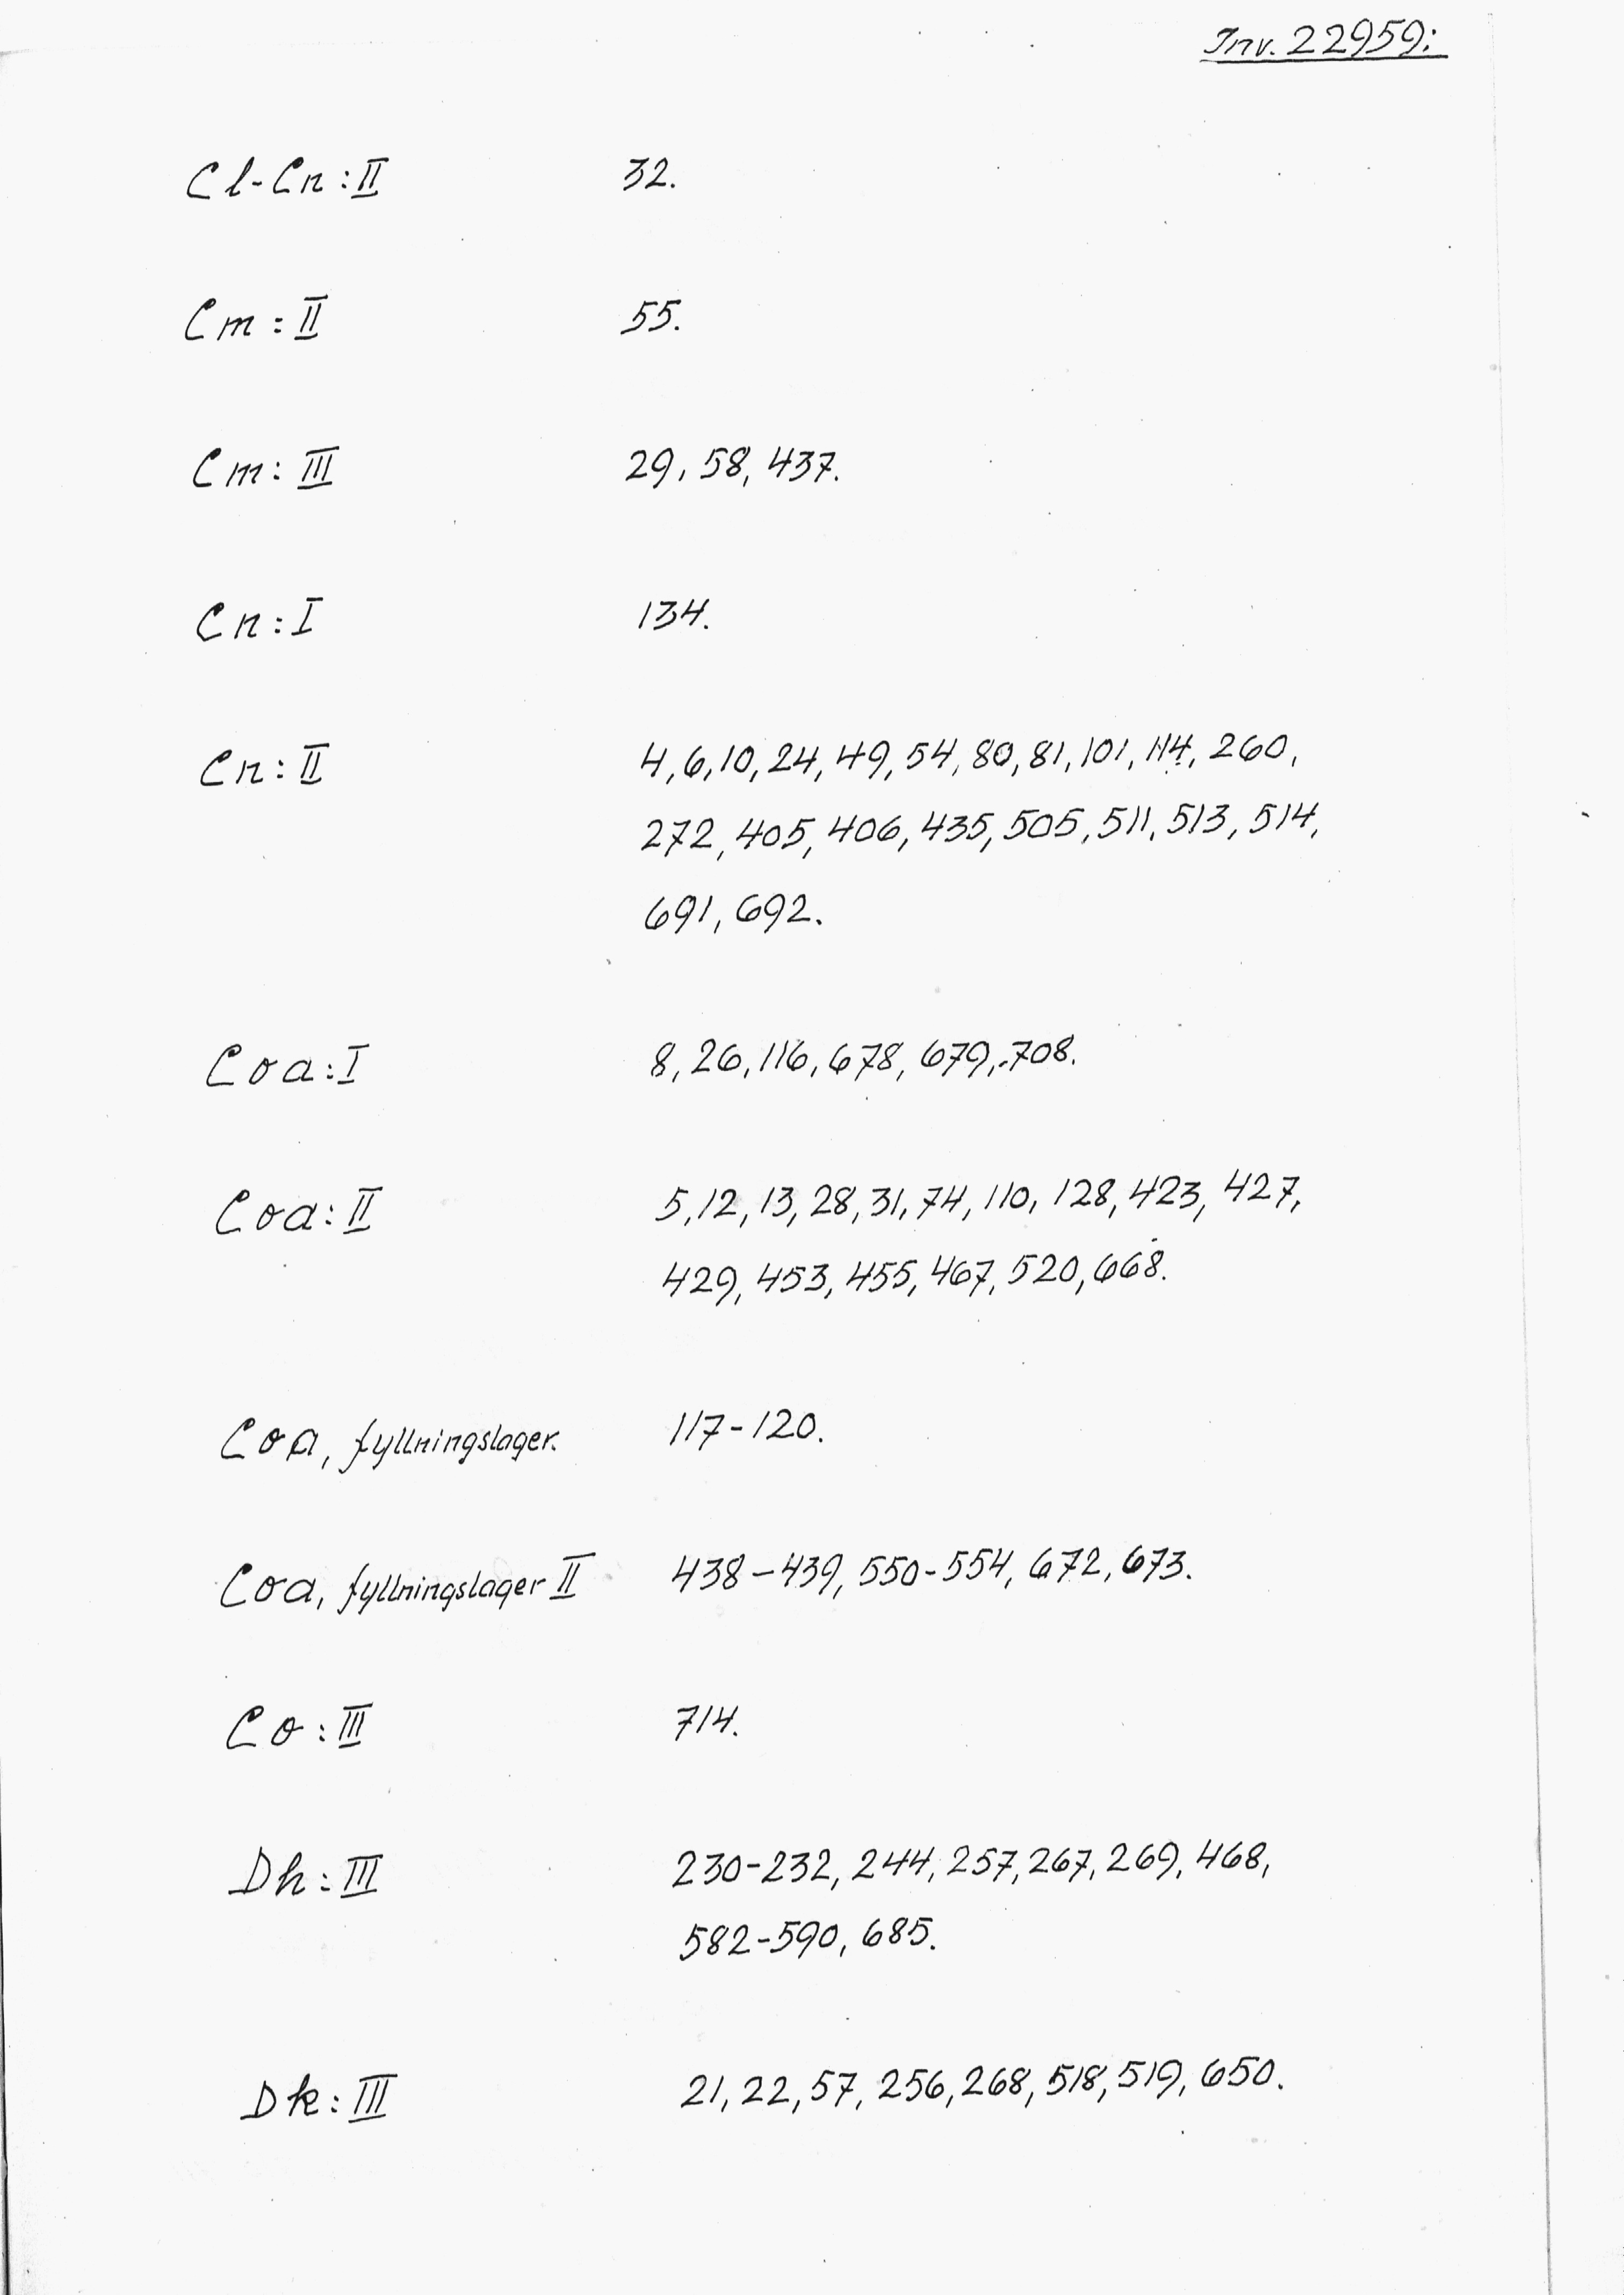 Inv. 22959:
Cl-Cn:II 32.
Cm:II 55.
Cm:III 29, 58, 437.
Cn:I 134.
Cn:II 4, 6, 10, 24, 49, 54, 80, 81, 101, 114, 260,
272, 405, 406, 435, 505, 511, 513, 514,
691, 692.
Coa:I 8, 26, 116, 678, 679, 708.
Coa:II 5, 12, 13, 28, 31, 74, 110, 128, 423, 427,
429, 453, 455, 467, 520, 668.
Coa, fyllningslager. 117-120.
Coa, fyllningslager II 438-439, 550-554, 672, 673.
Co:III 714.
Dh:III 230-232, 244, 257, 267, 269, 468,
582-590, 685.
Dk:III 21, 22, 57, 256, 268, 518, 519, 650.